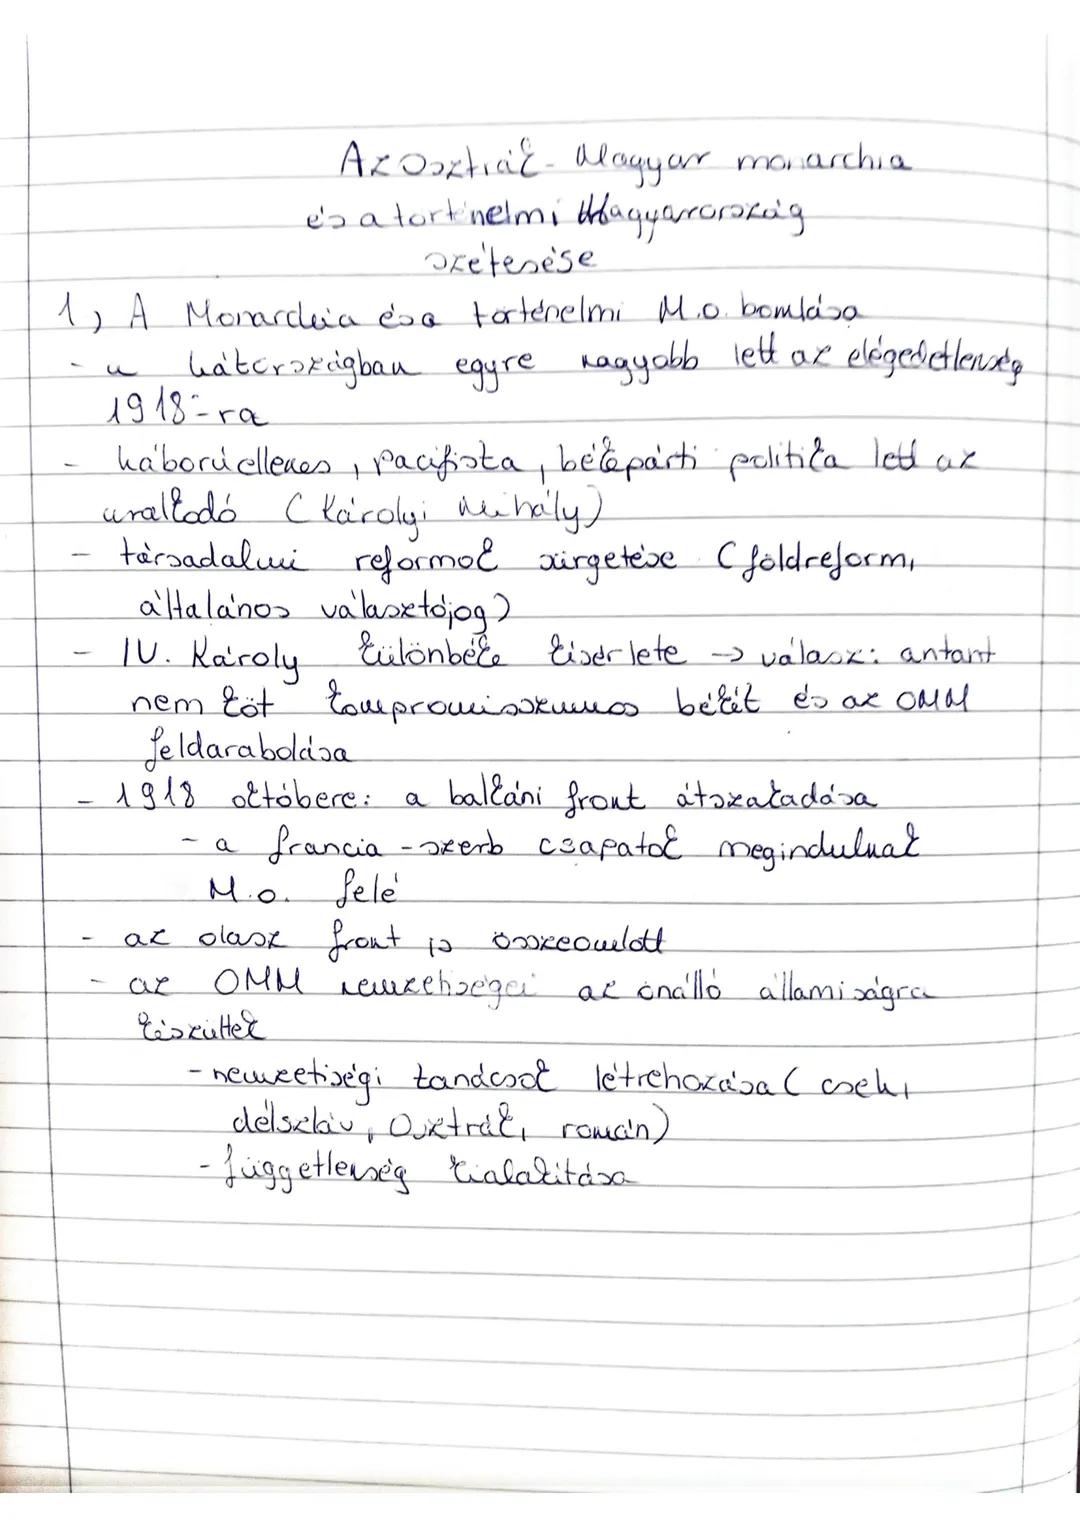 Az Osztrák - Magyar monarchia
és a történelmi Magyarország
szétesése
1, A Monarchia és a történelmi M.o. bomlása
- a hátországban egyre nagyobb lett az elégedetlenség
1918-ra
- háborúellenes, pacifista, békepárti politika lett az
uralkodó (Károlyi Mihály)
- társadalmi reformok sürgetése (földreform,
általános választójog)
- IV. Károly különbéke kisérlete -> válasz: antant
nem köt kompromisszumos békét és az OMM
feldarabolása
- 1918 októbere: a balkáni front átszakadása
- a francia - szerb csapatok megindulnak
M.o. felé
- az olasz front is összeomlott
- az OMM nemzetiségei az önálló államiságra
készültek
- nemzetiségi tanácsok létrehozása (cseh,
délszláv, Osztrák, román)
- függetlenség kialakitása